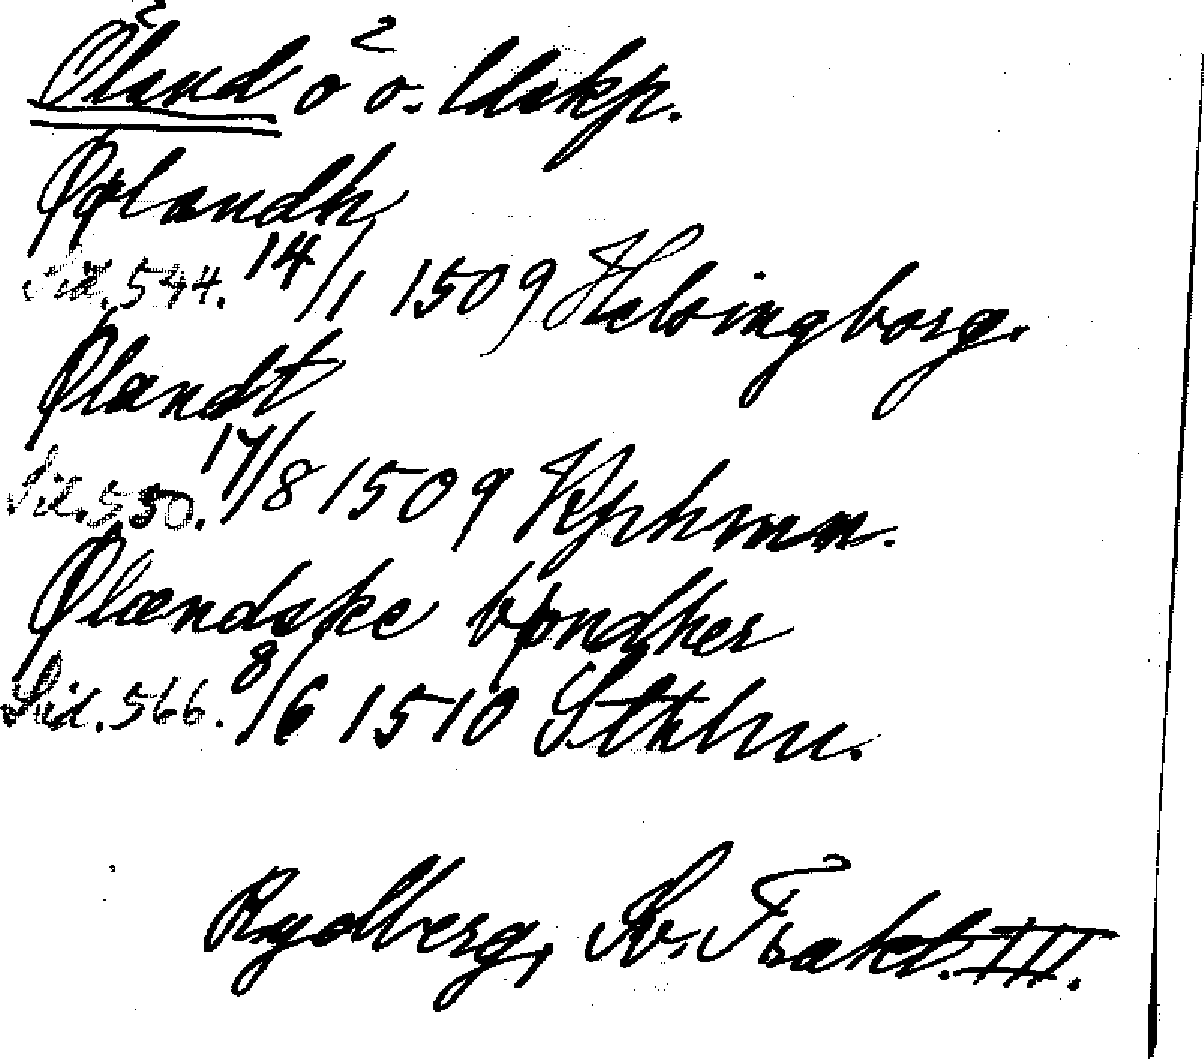 Öland ö o. ldskp.
Øølandh,
Sid. 544. 14/1 1509 Helsingborg.
Ølandt
Sid. 550. 17/8 1509 Kphmn.
Ølændske bøndher
Sid. 566. 8/6 1510 Sthlm.
Rydberg, Sv. Trakt. III.